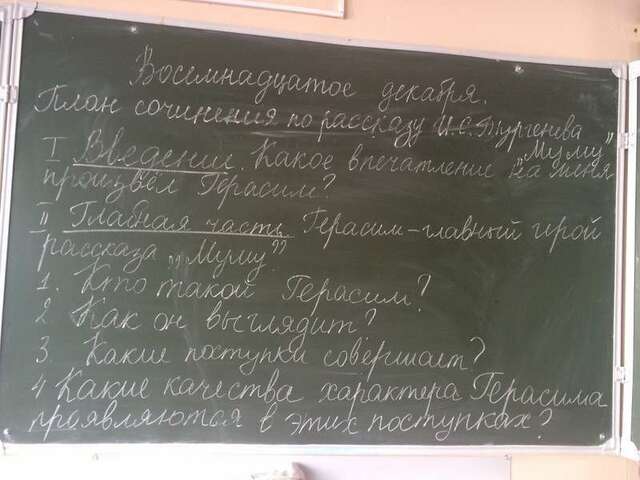 Восемнадцатое декабря.
План сочинения по рассказу И.С.Тургенева
„Муму”
I Введение. Какое впечатление на меня
произвёл Герасим?
II Главная часть Герасим-главный герой
рассказа „Муму”
1. Кто такой Герасим?
2. Как он выглядит?
3. Какие поступки совершает?
4 Какие качества характера Герасима
проявляются в этих поступках?